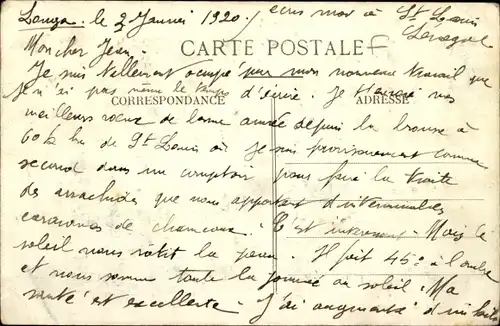 Louga. le 2 Janvier 1920. / écris moi à St Louis
Sénégal
Mon cher Jean. CARTE POSTALE
Je suis tellement occupé par mon nouveau travail que
je n'ai pas même le temps d'écrire. Je t'envoie mes
CORRESPONDANCE ADRESSE
meilleurs vœux de bonne année depuis la brousse à
60 k de St Louis où je suis provisoirement comme
second dans un comptoir pour faire la traite
des arachides que nous apportent d'interminables
caravanes de chameaux. C'est intéressant. Mais le
soleil nous rôtit la peau. Il fait 45° à l'ombre
et nous sommes toute la journée au soleil. Ma
santé est excellente. J'ai augmenté d'un kilo